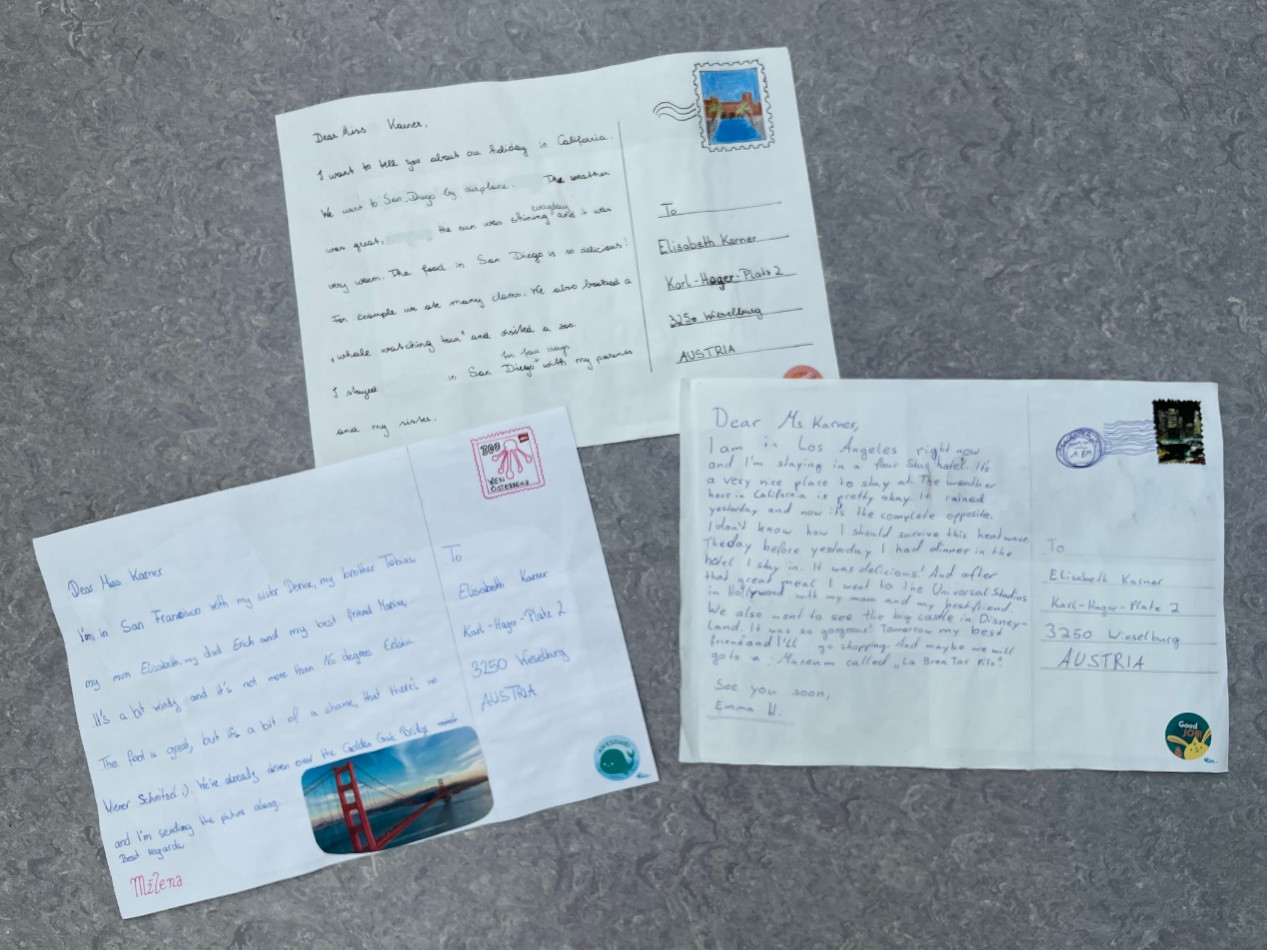 Dear Miss Karner,
I want to tell you about our holiday in California.
We went to San Diego by airplane. The weather
everyday
was great, the sun was shining and it was
very warm. The food in San Diego is so delicious!
For example we ate many clams. We also booked a
„whale watching tour" and visited a zoo.
for four days
I stayed in San Diego with my parents
and my sister.
To
Elisabeth Karner
Karl-Hager-Platz 2
3250 Wieselburg
AUSTRIA
Dear Miss Karner
I'm in San Francisco with my sister Denise, my brother Tobias
my mum Elisabeth, my dad Erich and my best friend Marina.
It's a bit windy and it's not more than 16 degrees Celsius
The food is great, but it's a bit of a shame, that there's no
Wiener Schnitzel :). We've already driven over the Golden Gate Bridge
and I'm sending the picture along.
Best regards
Milena
300
WIEN
ÖSTERREICH
To
Elisabeth Karner
Karl-Hager-Platz 2
3250 Wieselburg
AUSTRIA
AWESOME!
Dear Ms. Karner,
I am in Los Angeles right now
and I'm staying in a four star hotel. It's
a very nice place to stay at. The weather
here in California is pretty okay. It rained
yesterday and now it's the complete opposite.
I don't know how I should survive this heatwave.
The day before yesterday I had dinner in the
hotel I stay in. It was delicious! And after
that great meal I went to the Universal Studios
in Hollywood with my mom and my best friend.
We also went to see the big castle in Disney-
Land. It was so gorgeous! Tomorrow my best
friend and I'll go shopping. And maybe we will
go to a Museum called „La Brea Tar Pits".
See you soon,
Emma H.
To
Elisabeth Karner
Karl-Hager-Platz 2
3250 Wieselburg
AUSTRIA
Good
JOB!